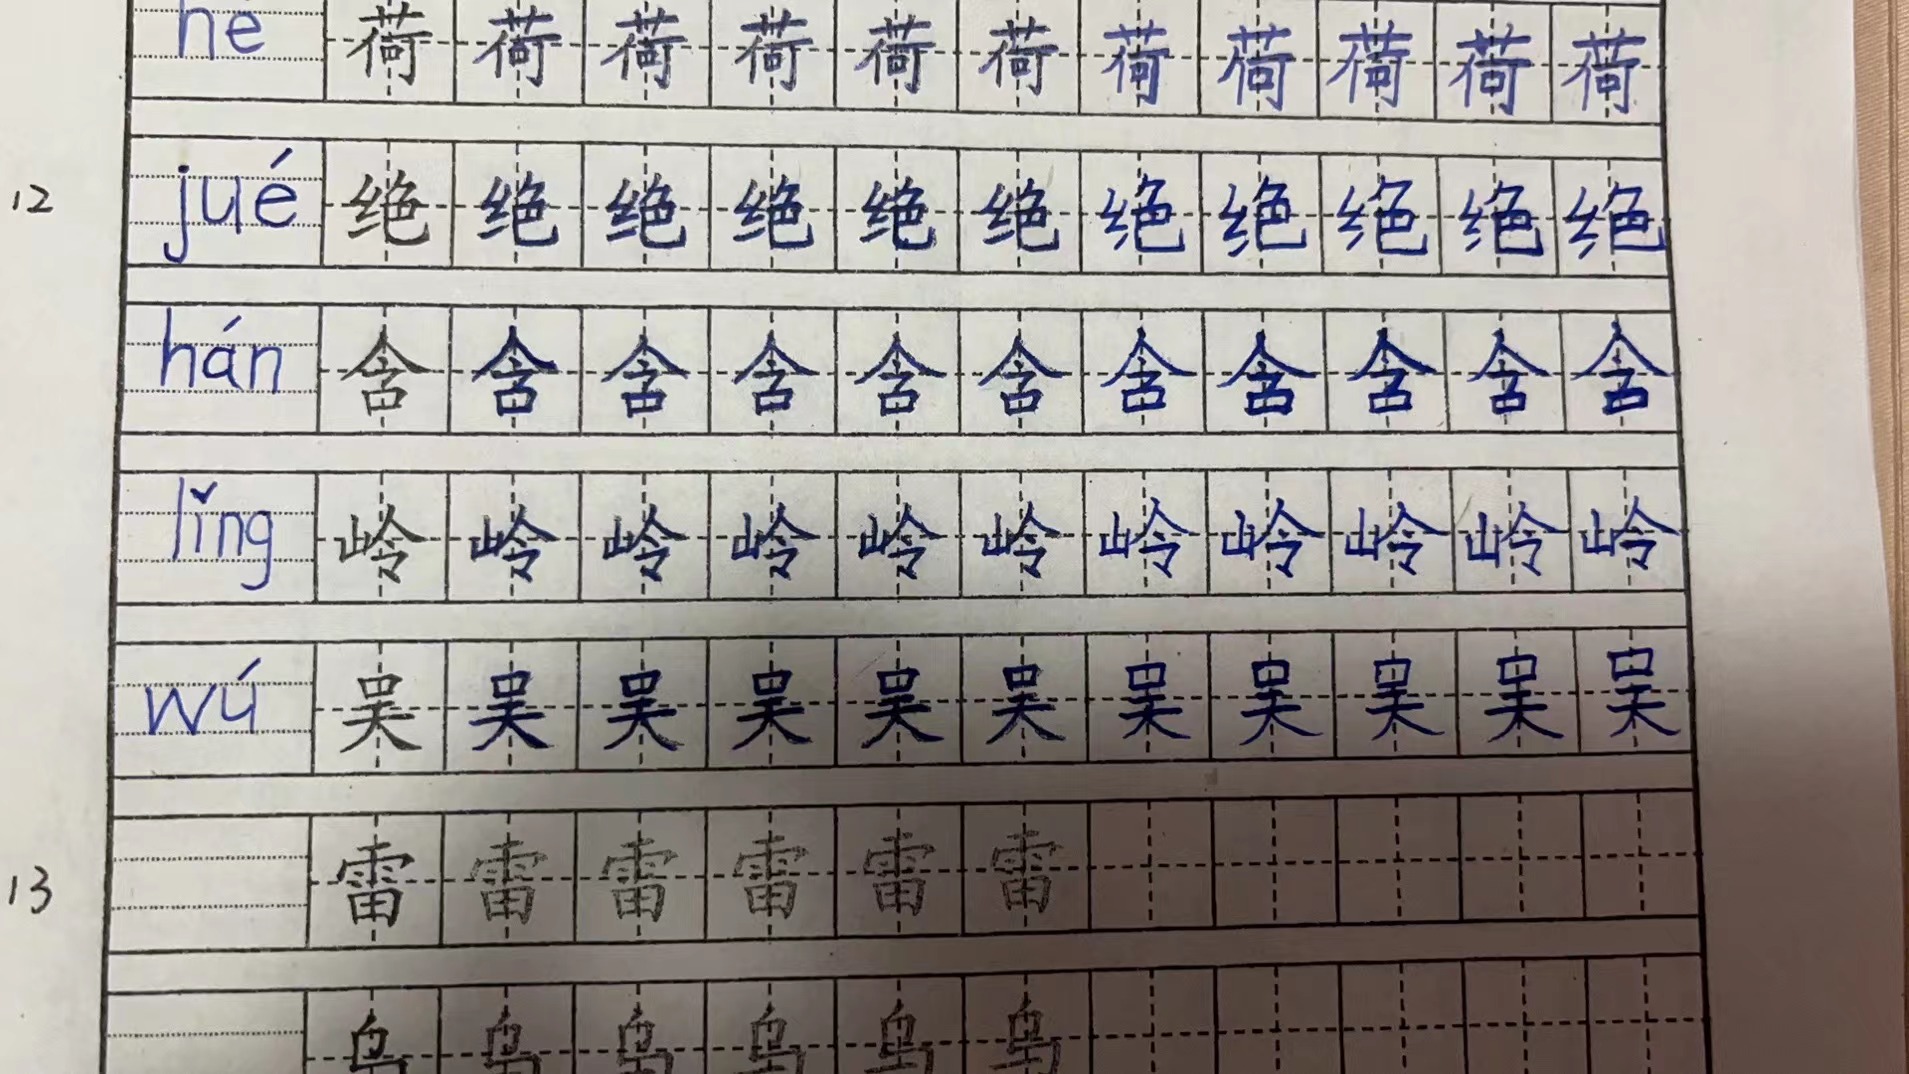 hé 荷 荷 荷 荷 荷 荷 荷 荷 荷 荷 荷
12 jué 绝 绝 绝 绝 绝 绝 绝 绝 绝 绝 绝
hán 含 含 含 含 含 含 含 含 含 含 含
lǐng 岭 岭 岭 岭 岭 岭 岭 岭 岭 岭 岭
wú 吴 吴 吴 吴 吴 吴 吴 吴 吴 吴 吴
13 雷 雷 雷 雷 雷 雷
乌 乌 乌 乌 乌 乌